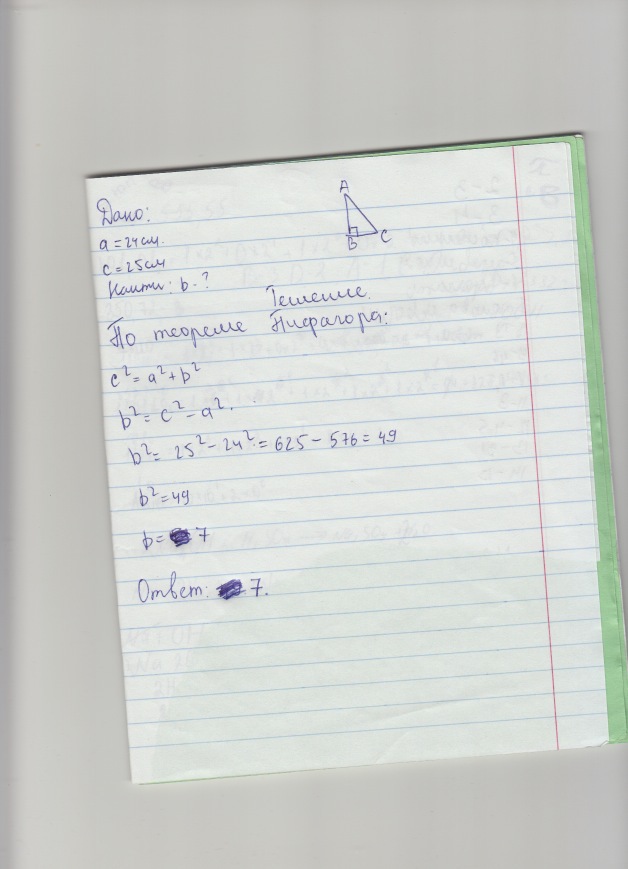 Дано:
a = 24 см.
c = 25 см
Найти: b - ?
A
B
C
Решение.
По теореме Пифагора:
c² = a² + b²
b² = c² - a².
b² = 25² - 24² = 625 - 576 = 49
b² = 49
b = 7
Ответ: 7.